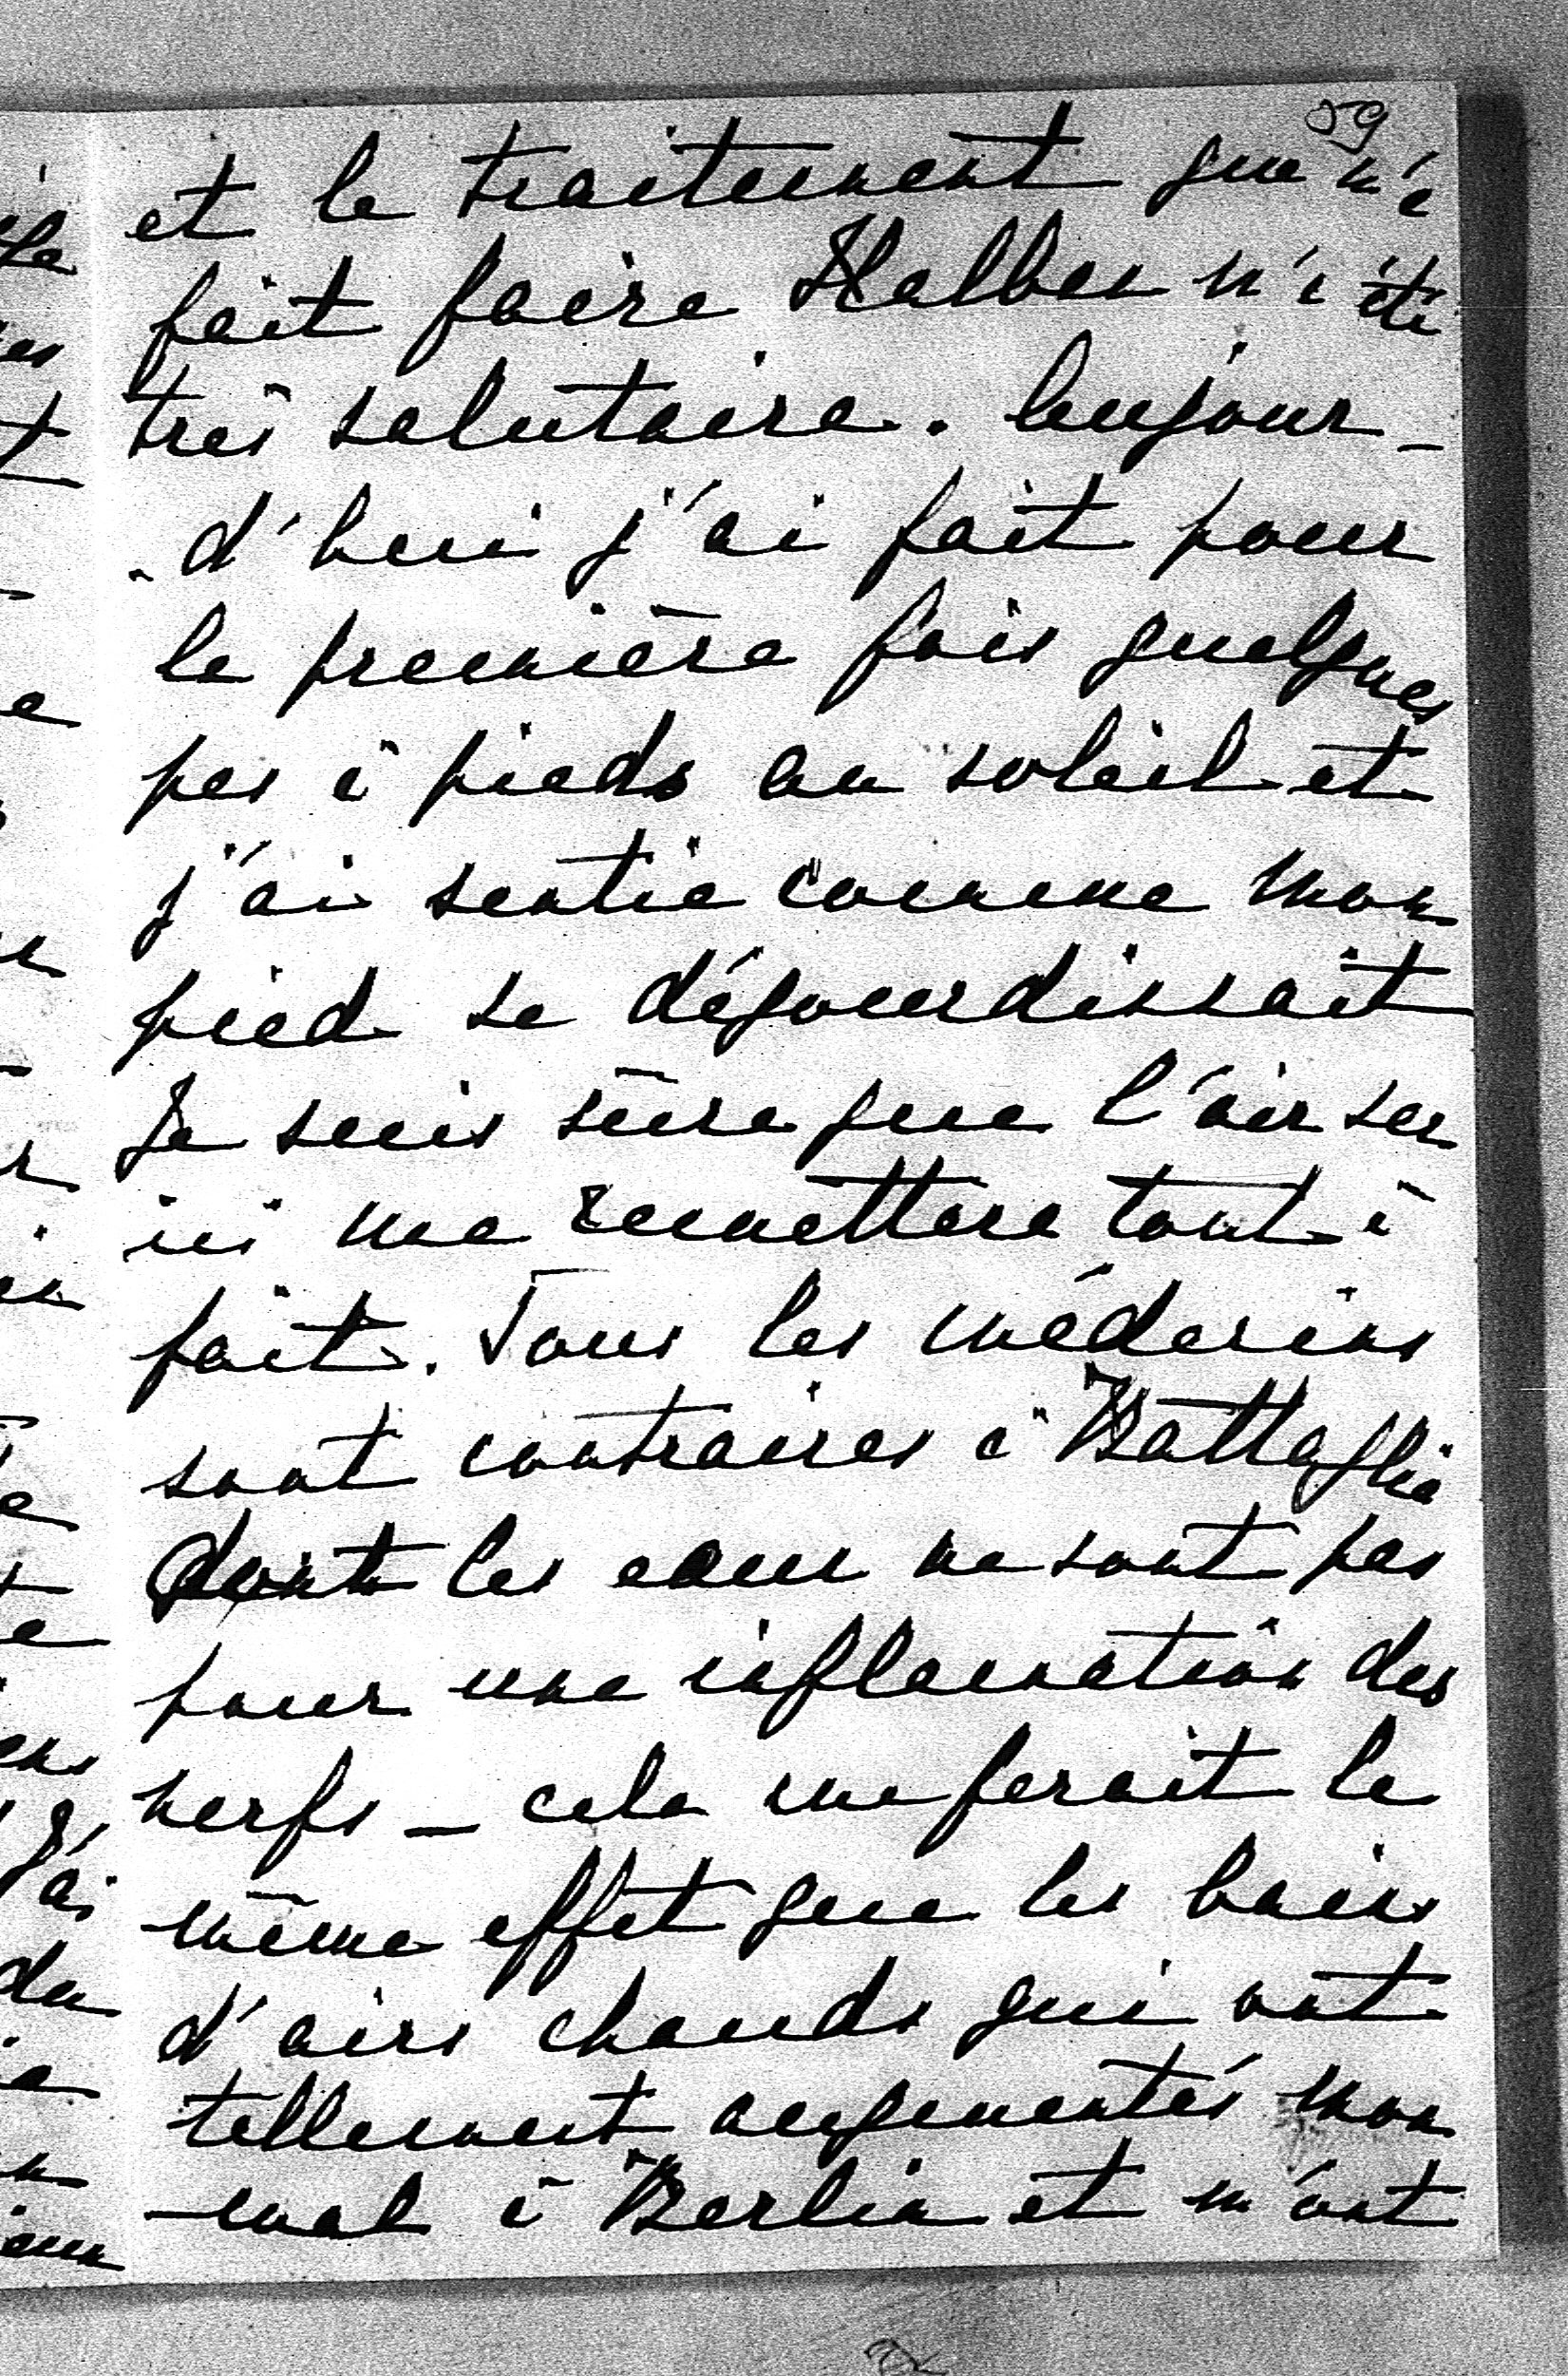 59
et le traitement que m'a
fait faire Halban m'a été
très salutaire. Aujour-
d'hui j'ai fait pour
la première fois quelques
pas à pieds au soleil et
j'ai sentie comme mon
pied se dégourdissait
Je suis sûre que l'air sec
ici me remettera tout à
fait. Tous les médecins
sont contraires à Battaglia
dont les eaux ne sont pas
pour une inflamation des
nerfs – cela me ferait le
même effet que les bains
d'airs chauds qui ont
tellement augmentés mon
mal à Berlin et m'ont